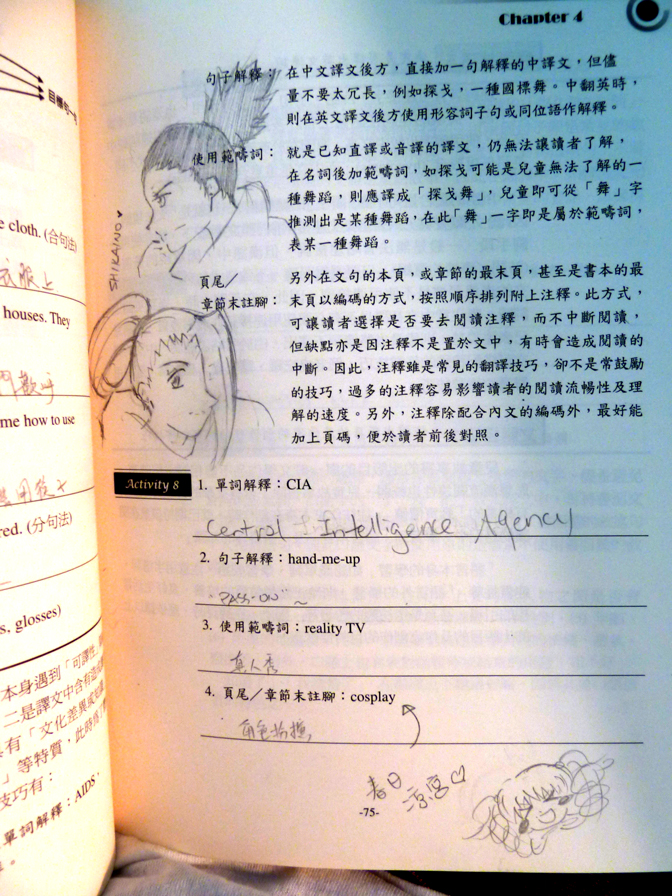 Chapter 4
目標句一句
句子解釋： 在中文譯文後方，直接加一句解釋的中譯文，但儘
量不要太冗長，例如探戈，一種國標舞。中翻英時，
則在英文譯文後方使用形容詞子句或同位語作解釋。
使用範疇詞： 就是已知直譯或音譯的譯文，仍無法讓讀者了解，
在名詞後加範疇詞，如探戈可能是兒童無法了解的一
種舞蹈，則應譯成「探戈舞」，兒童即可從「舞」字
推測出是某種舞蹈，在此「舞」一字即是屬於範疇詞，
表某一種舞蹈。
SHIKAINO ♥
頁尾／ 另外在文句的本頁，或章節的最末頁，甚至是書本的最
章節末註腳： 末頁以編碼的方式，按照順序排列附上注釋。此方式，
可讓讀者選擇是否要去閱讀注釋，而不中斷閱讀，
但缺點亦是因注釋不是置於文中，有時會造成閱讀的
中斷。因此，注釋雖是常見的翻譯技巧，卻不是常鼓勵
的技巧，過多的注釋容易影響讀者的閱讀流暢性及理
解的速度。另外，注釋除配合內文的編碼外，最好能
加上頁碼，便於讀者前後對照。
Activity 8 1. 單詞解釋：CIA
Central Intelligence Agency
2. 句子解釋：hand-me-up
PASS-ON ~
3. 使用範疇詞：reality TV
真人秀
4. 頁尾／章節末註腳：cosplay
角色扮演
春日
涼宮♡
-75-
e cloth. (合句法)
衣服上
houses. They
門歡呼
me how to use
red. (分句法)
s, glosses)
本身遇到「可譯性」
二是譯文中含有
有「文化差異
」等特質，此時
技巧有：
單詞解釋：AIDS，